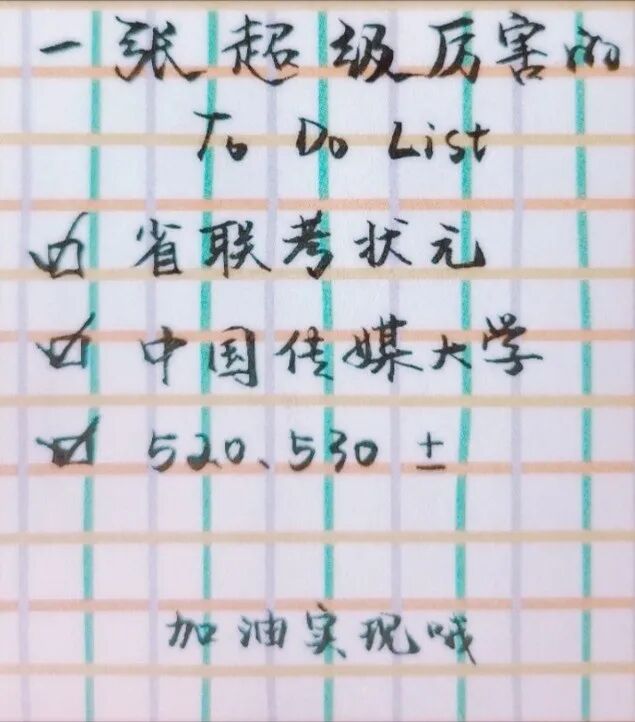 一张超级厉害的
To Do List
省联考状元
中国传媒大学
520、530 ±
加油实现哦